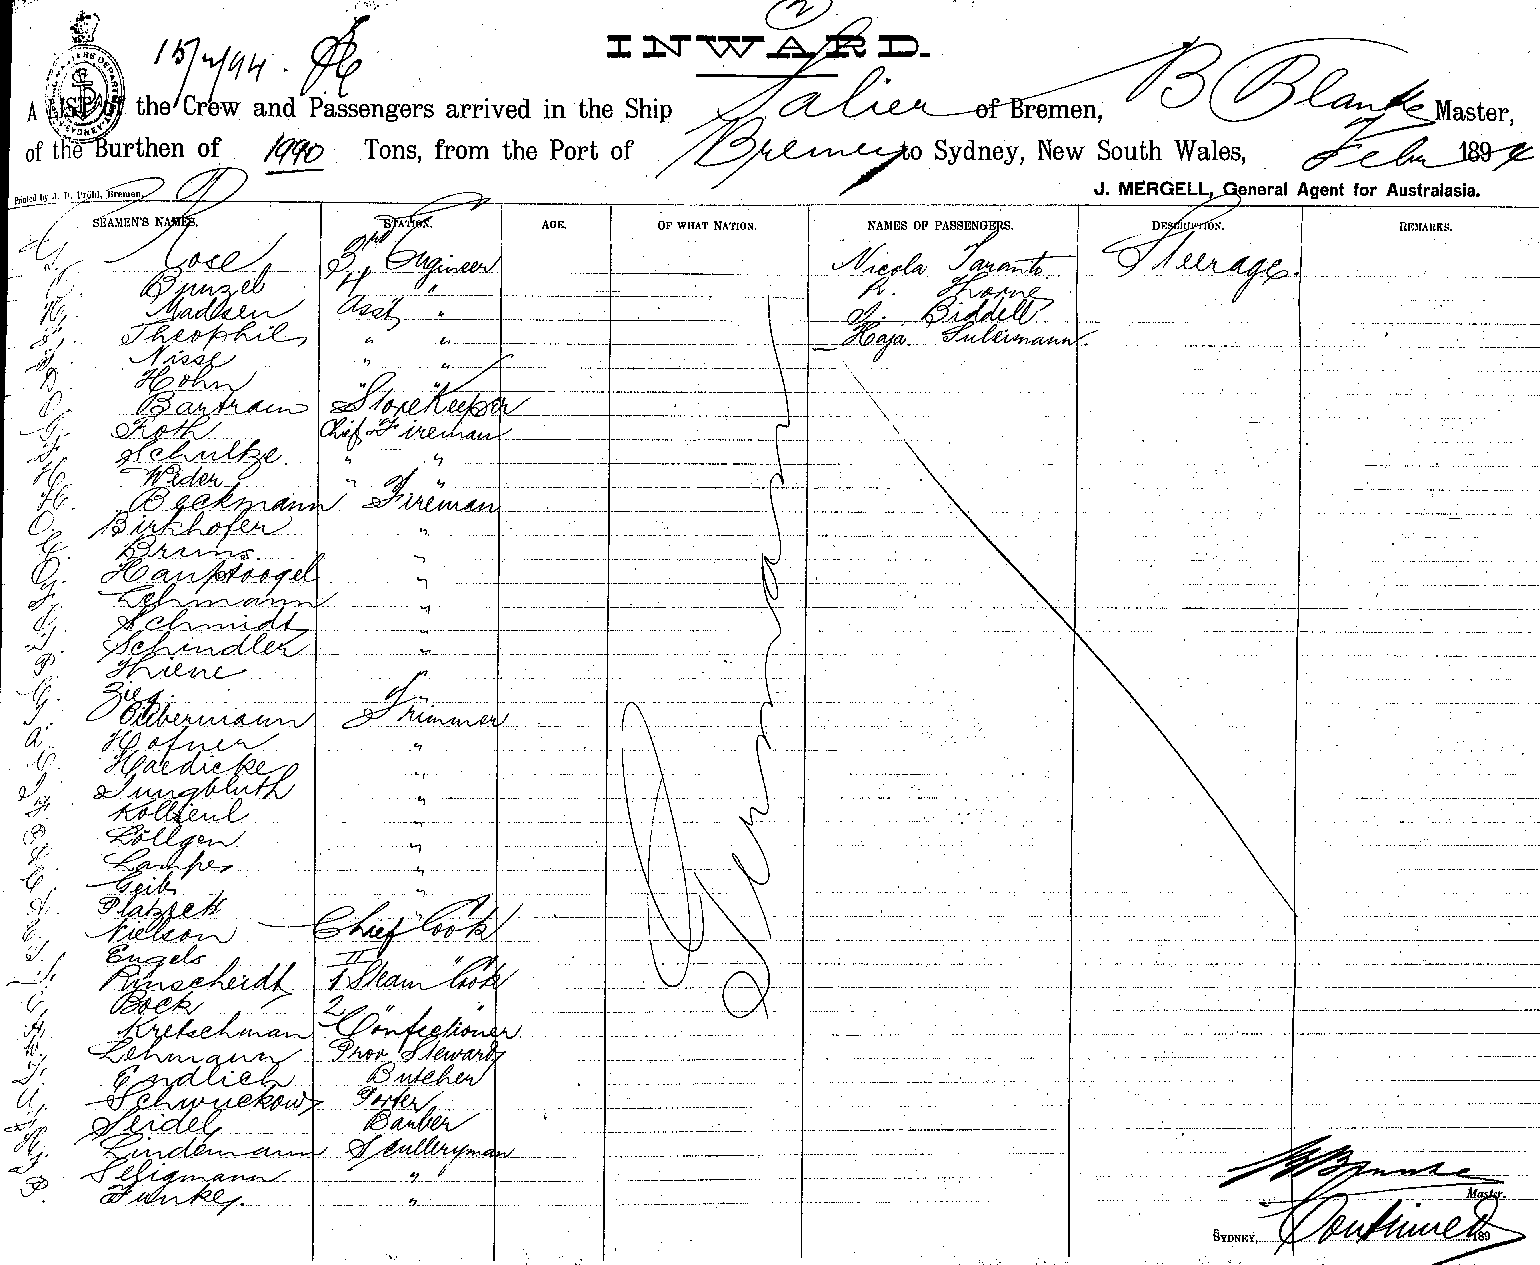 2
INWARD.
15/2/94.
A LIST of the Crew and Passengers arrived in the Ship Salier of Bremen, B Blanke Master,
of the Burthen of 1990 Tons, from the Port of Bremen to Sydney, New South Wales, Febr 1894
Printed by J. D. Pröhl, Bremen.
J. MERGELL, General Agent for Australasia.
SEAMEN'S NAMES. STATION. AGE. OF WHAT NATION. NAMES OF PASSENGERS. DESCRIPTION. REMARKS.
Rose 3rd Engineer Nicola Taranto Steerage.
Bunzel 4 " Thorne
Madsen Asst " J. Biddell
Theophil " " Haja Sulermann
Nisse " "
Hohn " "
Bartram Storekeeper
Roth Chief Fireman
Schulke " "
Weder " "
H. Beckmann Fireman
O. Birkhofer "
Bruns "
Hauptvogel "
Lehmann "
Schmidt "
Schindler "
Thiene "
"
Trimmer
A. Hofner "
Haedicke "
Jungbluth "
"
Löllgen "
Lampe "
Geib "
Nielson Chief Cook
Engels II " "
Rinscheidt 1 Steam Cook
Bock 2 " "
Kretschman Confectioner
Lehmann Prov Steward
Endlich Butcher
Schwuckow Porter
Seidel Barber
Lindemann Sculleryman
Seligmann "
Funke "
German
Master.
SYDNEY, Continued 189